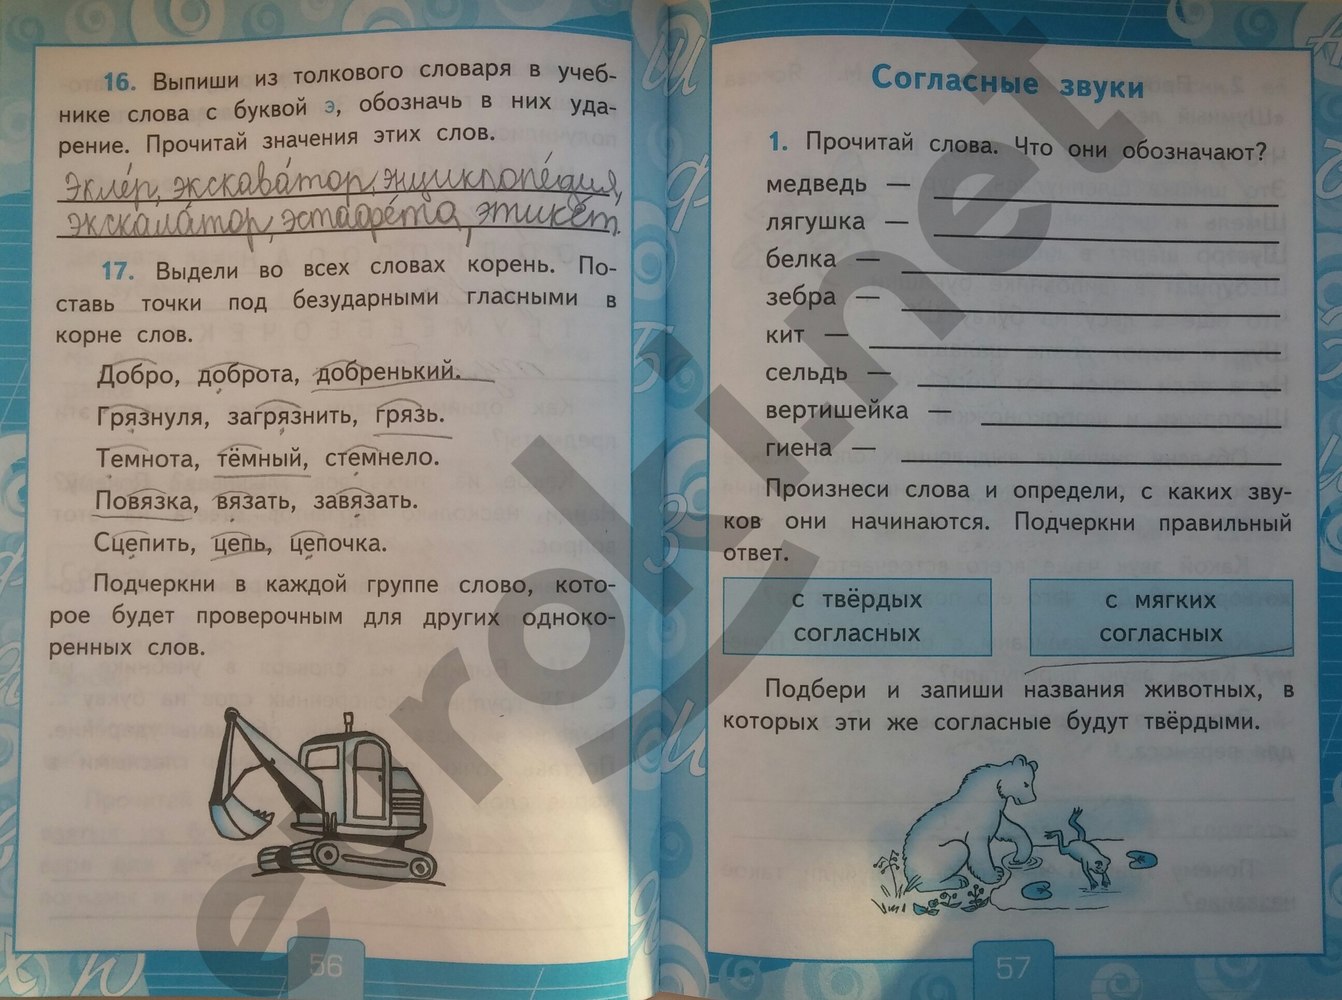 16. Выпиши из толкового словаря в учеб-
нике слова с буквой э, обозначь в них уда-
рение. Прочитай значения этих слов.
Экле́р, экскава́тор, энциклопе́дия,
экскала́тор, эстафе́та, этике́т.
17. Выдели во всех словах корень. По-
ставь точки под безударными гласными в
корне слов.
Добро, доброта, добренький.
Грязнуля, загрязнить, грязь.
Темнота, тёмный, стемнело.
Повязка, вязать, завязать.
Сцепить, цепь, цепочка.
Подчеркни в каждой группе слово, кото-
рое будет проверочным для других одноко-
ренных слов.
56
Согласные звуки
1. Прочитай слова. Что они обозначают?
медведь —
лягушка —
белка —
зебра —
кит —
сельдь —
вертишейка —
гиена —
Произнеси слова и определи, с каких зву-
ков они начинаются. Подчеркни правильный
ответ.
с твёрдых
согласных
с мягких
согласных
Подбери и запиши названия животных, в
которых эти же согласные будут твёрдыми.
57
euroki.net